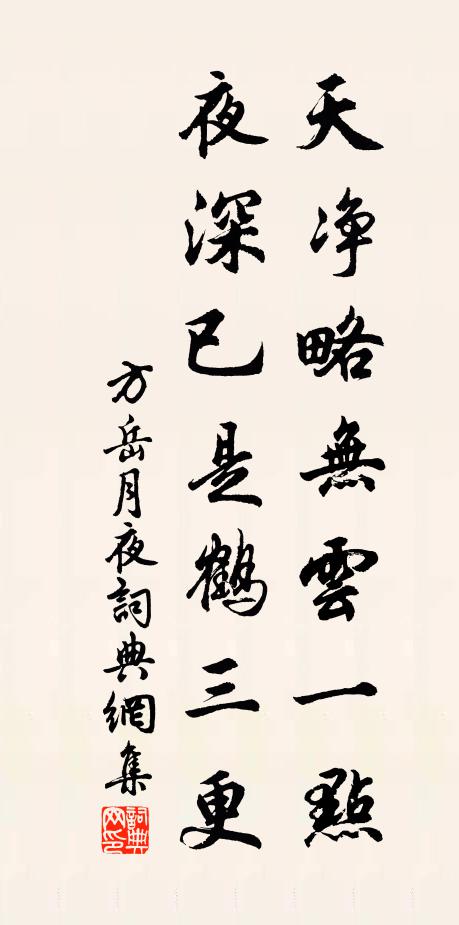 天净略無雲一點
夜深已是鶴三更
方岳月夜詞典網集
詞典網印